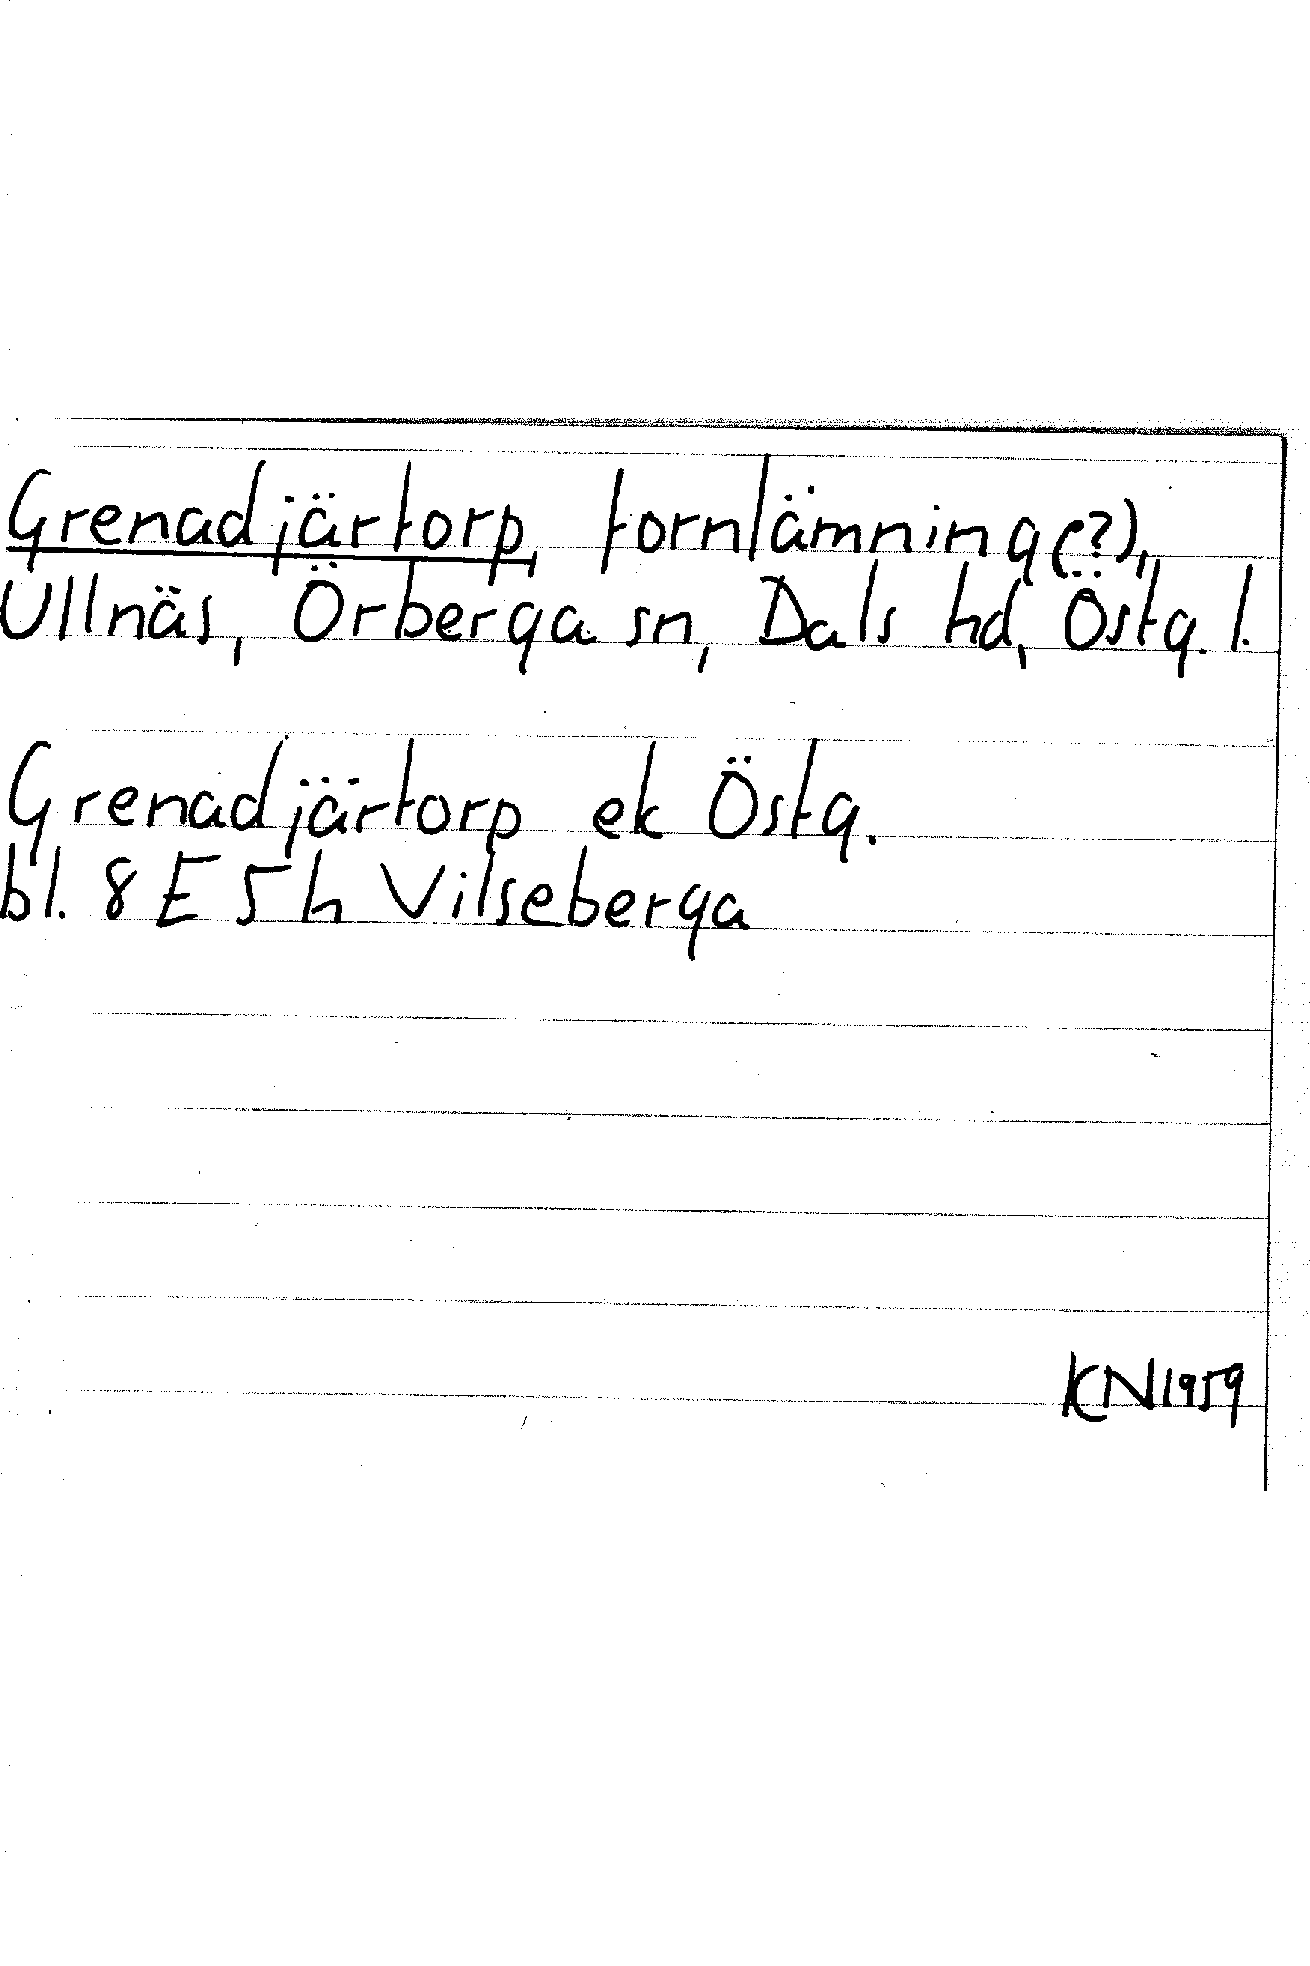 Grenadjärtorp, fornlämning(?),
Ullnäs, Örberga sn, Dals hd, Östg. l.
Grenadjärtorp ek Östg.
bl. 8 E 5 h Vilseberga
KN 1959